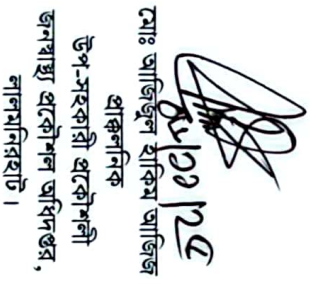 মোঃ আজিজুল হাকিম আজিজ
প্রাক্কলনিক
উপ-সহকারী প্রকৌশলী
জনস্বাস্থ্য প্রকৌশল অধিদপ্তর,
লালমনিরহাট।